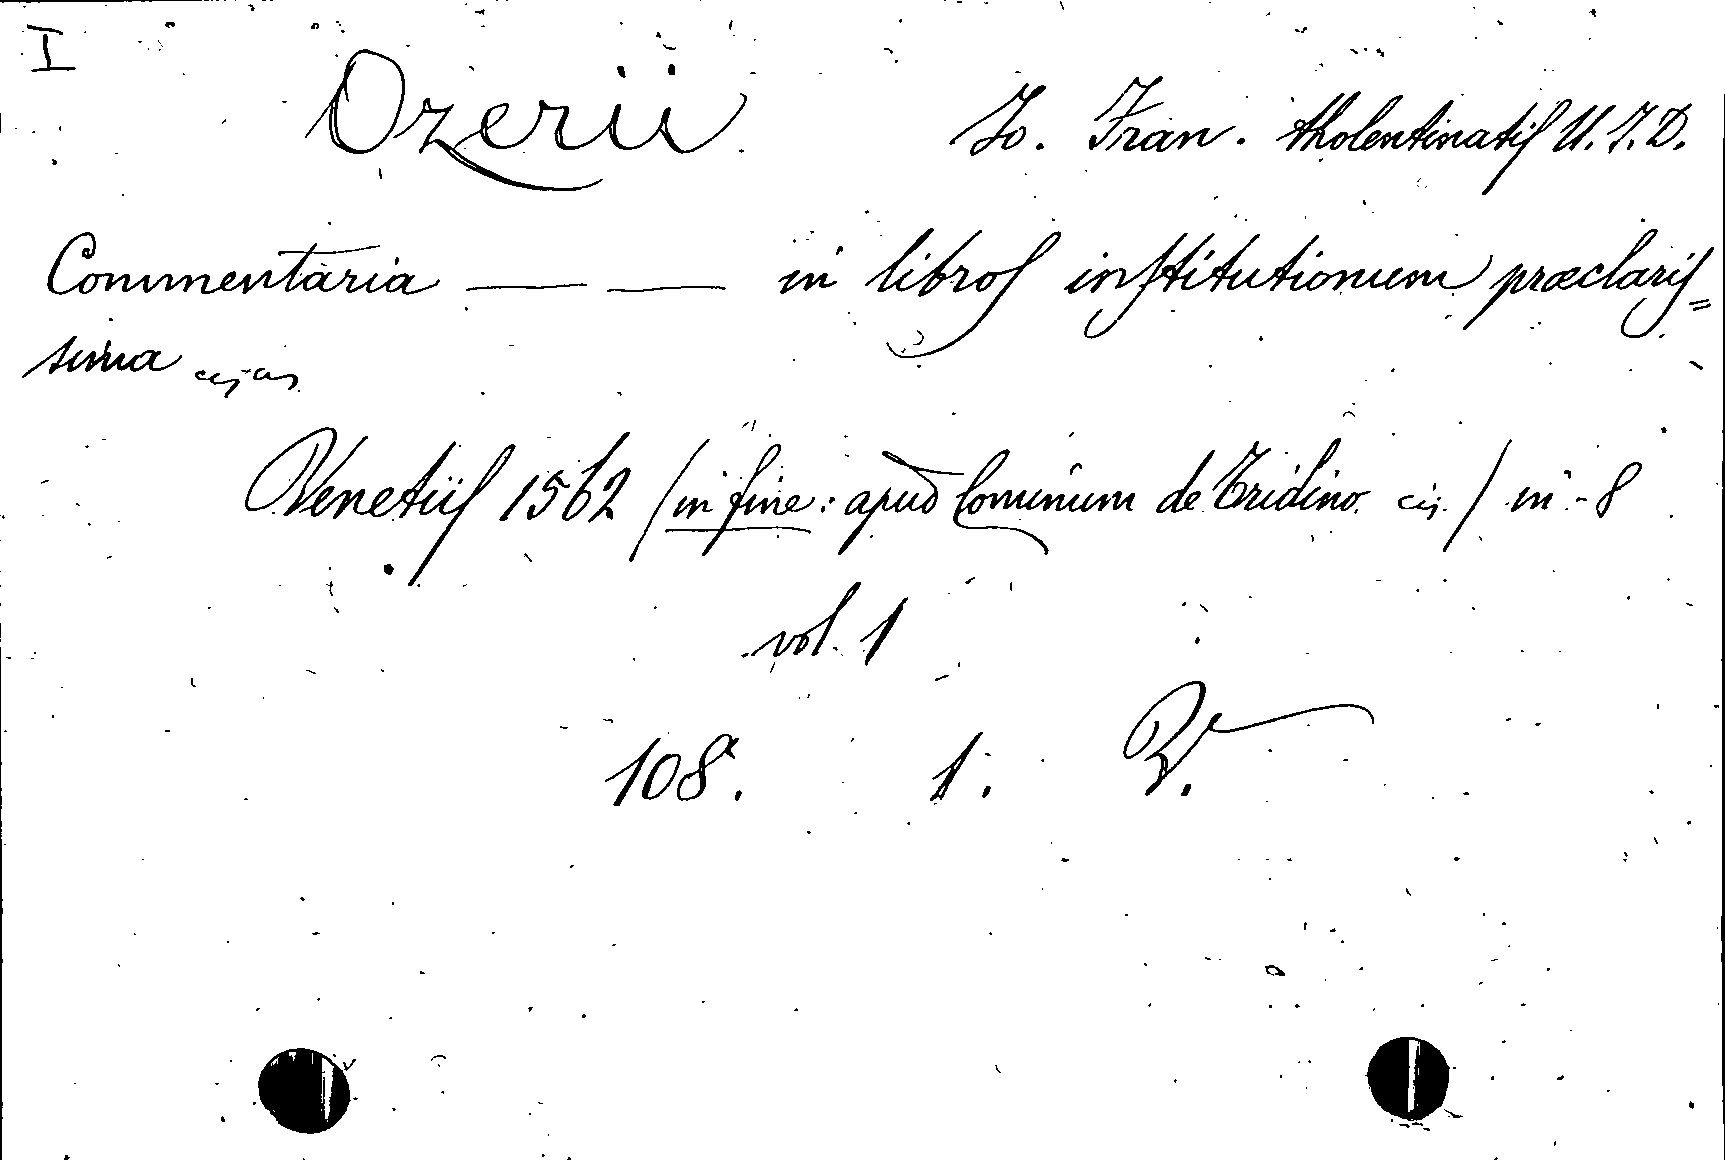 I
Ozerii Jo. Fran. tholentinatiſ U. J. D.
Commentaria — — in libroſ inſtitutionum præclariſ=
sima
Venetiiſ 1562 (in fine: apud Cominum de Tridino) in-8
vol. 1
108. 1.